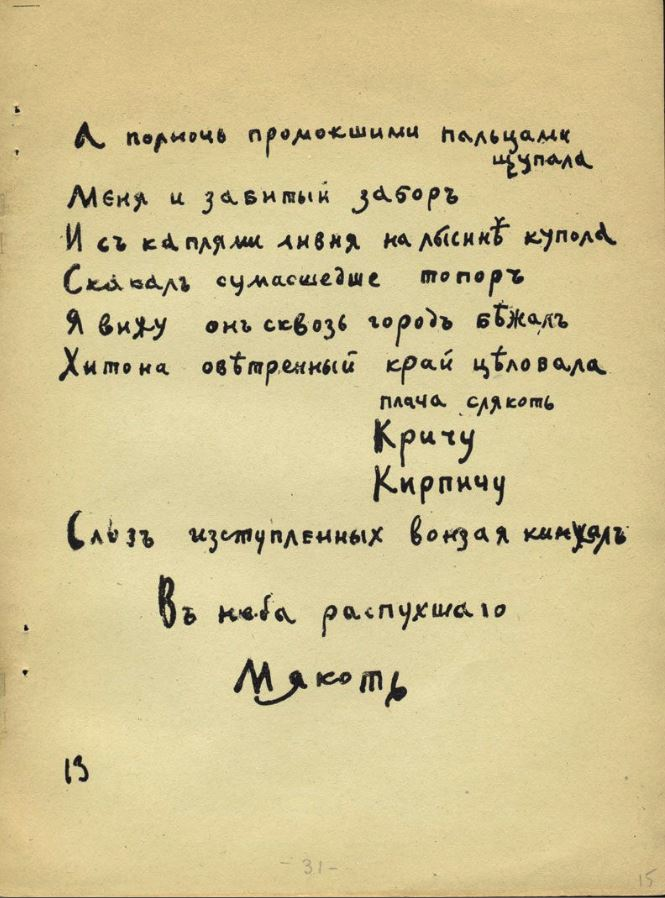 А полночь промокшими пальцами
щупала
Меня и забитый заборъ
И съ каплями ливня на лысинѣ купола
Скакалъ сумасшедше топоръ
Я вижу онъ сквозь городъ бѣжалъ
Хитона овѣтренный край цѣловала
плача слякоть
Кричу
Кирпичу
Слезъ изступленныхъ вонзая кинжалъ
Въ неба распухшаго
Мякоть
13
-31-
15